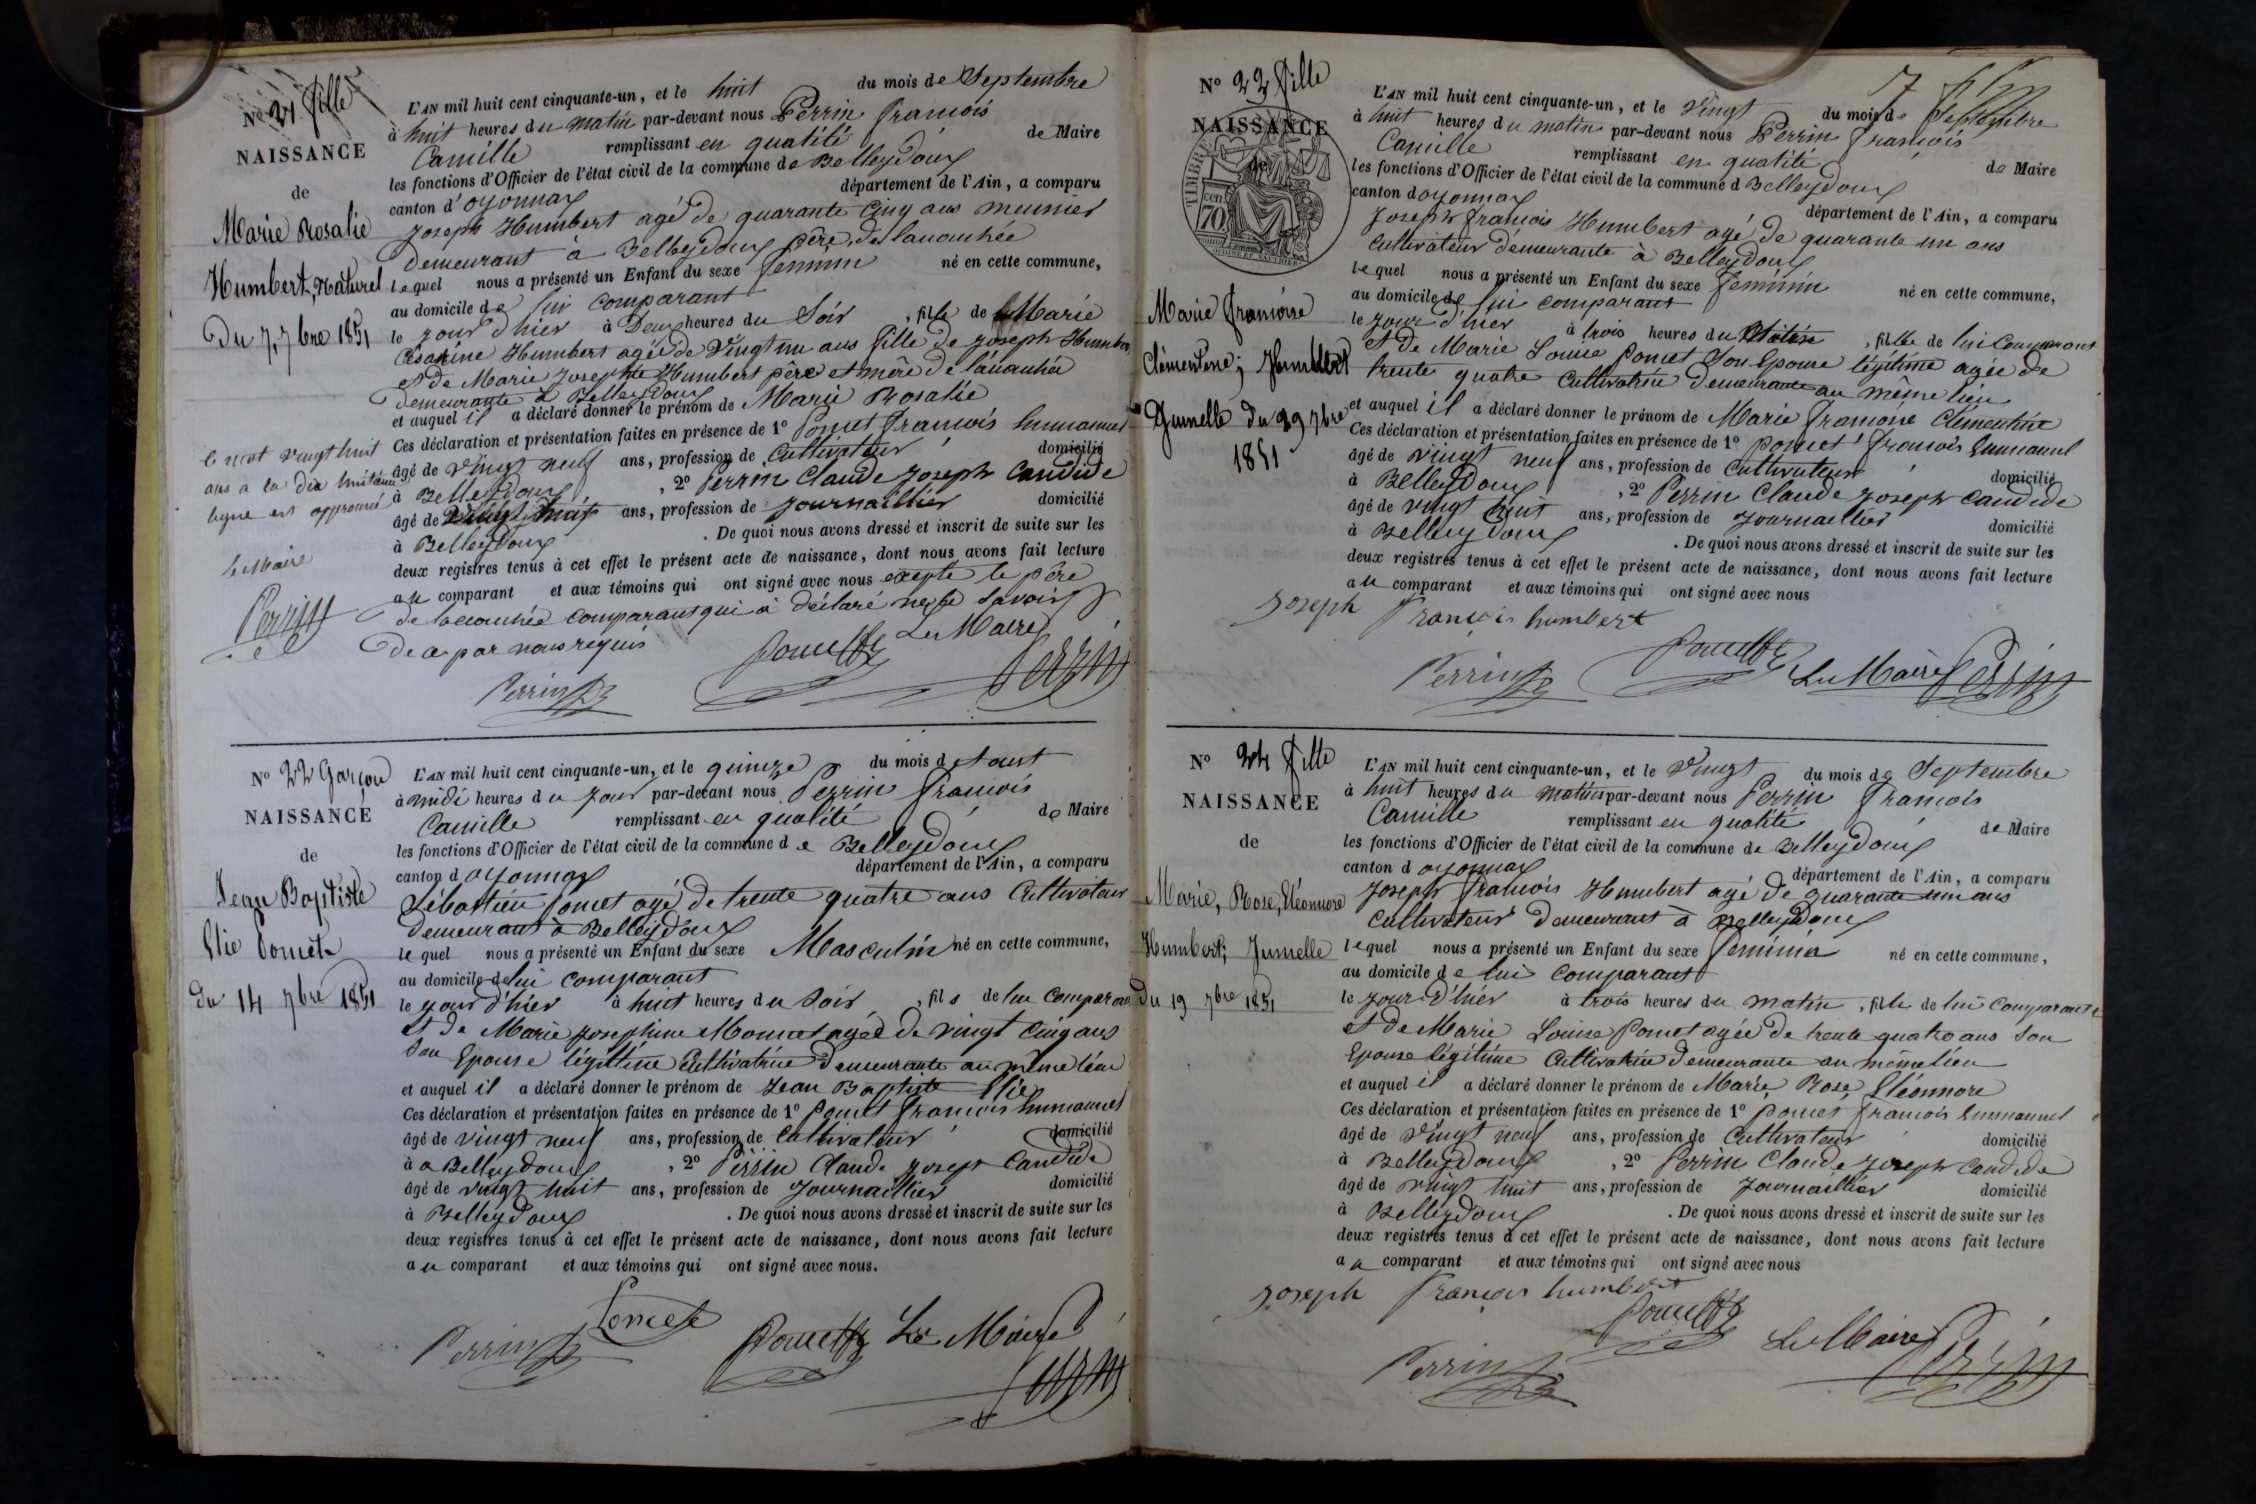 No 21 fille
NAISSANCE
de
Marie Rosalie
Humbert, Naturel
Du 7, 7bre 1851
le mot vingt huit
ans a la dix huitième
ligne est approuvé
le Maire
Perrin
L'AN mil huit cent cinquante-un, et le huit du mois de Septembre
à huit heures du matin par-devant nous Perrin francois
Camille remplissant en qualité de Maire
les fonctions d'Officier de l'état civil de la commune de Belleydoux
canton d'oyonnax département de l'Ain, a comparu
Joseph Humbert agé de quarante cinq ans meunier
demeurant à Belleydoux père de lacouchée
lequel nous a présenté un Enfant du sexe feminin né en cette commune,
au domicile de lui comparant
le jour d'hier à Deux heures du Soir, fille de Marie
Césarine Humbert agée de Vingt un ans fille de Joseph Humbert
et de Marie Josephte Humbert père et mère de lacouchée
demeurante à Belleydoux
et auquel il a déclaré donner le prénom de Marie Rosalie
Ces déclaration et présentation faites en présence de 1o Poncet francois Emmanuel
âgé de vingt neuf ans, profession de Cultivateur domicilié
à Belleydoux, 2o Perrin Claude Joseph Candide
âgé de vingt huit ans, profession de Journaillier domicilié
à Belleydoux. De quoi nous avons dressé et inscrit de suite sur les
deux registres tenus à cet effet le présent acte de naissance, dont nous avons fait lecture
au comparant et aux témoins qui ont signé avec nous excepte le père
de lacouchée comparant qui a déclaré ne le savoir
de ce par nous requis
Le Maire
Perrin Poncet Perrin
No 22 Garçon
NAISSANCE
de
Jean Baptiste
Elie Poncet
du 14 7bre 1851
L'AN mil huit cent cinquante-un, et le quinze du mois d'Aout
à midi heures du jour par-devant nous Perrin francois
Camille remplissant en qualité de Maire
les fonctions d'Officier de l'état civil de la commune de Belleydoux
canton d oyonnax département de l'Ain, a comparu
Sébastien Poncet agé de trente quatre ans Cultivateur
demeurant à Belleydoux
lequel nous a présenté un Enfant du sexe Masculin né en cette commune,
au domicile de lui comparant
le jour d'hier à huit heures du soir, fils de lui comparant
et de Marie Josephine Monnet agée de vingt cinq ans
Son Epouse légitime Cultivatrice demeurante au même lieu
et auquel il a déclaré donner le prénom de Jean Baptiste Elie
Ces déclaration et présentation faites en présence de 1o Poncet francois Emmanuel
âgé de vingt neuf ans, profession de Cultivateur domicilié
à a Belleydoux, 2o Perrin Claude Joseph Candide
âgé de vingt huit ans, profession de Journaillier domicilié
à Belleydoux. De quoi nous avons dressé et inscrit de suite sur les
deux registres tenus à cet effet le présent acte de naissance, dont nous avons fait lecture
au comparant et aux témoins qui ont signé avec nous.
Poncet
Perrin Poncet Le Maire
Perrin
7
No 23 fille
NAISSANCE
de
TIMBRE
70
Marie francoise
Clémentine; Humbert
Jumelle du 19 7bre
1851
L'AN mil huit cent cinquante-un, et le vingt du mois de Septembre
à huit heures du matin par-devant nous Perrin francois
Camille remplissant en qualité de Maire
les fonctions d'Officier de l'état civil de la commune d Belleydoux
canton d oyonnax département de l'Ain, a comparu
Joseph francois Humbert agé de quarante un ans
Cultivateur demeurante à Belleydoux
lequel nous a présenté un Enfant du sexe feminin né en cette commune,
au domicile de lui comparant
le jour d'hier à trois heures du Matin, fille de lui Comparant
et de Marie Louise Poncet Son Epouse légitime agée de
trente quatre Cultivatrice demeurante au même lieu
et auquel il a déclaré donner le prénom de Marie francoise Clémentine
Ces déclaration et présentation faites en présence de 1o Poncet francois Emmanuel
âgé de vingt neuf ans, profession de Cultivateur domicilié
à Belleydoux, 2o Perrin Claude Joseph Candide
âgé de vingt huit ans, profession de Journaillier domicilié
à Belleydoux. De quoi nous avons dressé et inscrit de suite sur les
deux registres tenus à cet effet le présent acte de naissance, dont nous avons fait lecture
au comparant et aux témoins qui ont signé avec nous
Joseph François humbert
Perrin Poncet Le Maire Perrin
No 24 fille
NAISSANCE
de
Marie, Rose, Eléonnore
Humbert; Jumelle
du 19 7bre 1851
L'AN mil huit cent cinquante-un, et le Vingt du mois de Septembre
à huit heures du matin par-devant nous Perrin francois
Camille remplissant en qualité de Maire
les fonctions d'Officier de l'état civil de la commune de Belleydoux
canton d oyonnax département de l'Ain, a comparu
Joseph francois Humbert agé de quarante un ans
Cultivateur demeurant à Belleydoux
lequel nous a présenté un Enfant du sexe feminin né en cette commune,
au domicile de lui comparant
le jour d'hier à trois heures du matin, fille de lui comparant
et de Marie Louise Poncet agée de trente quatre ans Son
Epouse légitime Cultivatrice demeurante au même lieu
et auquel il a déclaré donner le prénom de Marie, Rose, Eléonnore
Ces déclaration et présentation faites en présence de 1o Poncet francois Emmanuel
âgé de vingt neuf ans, profession de Cultivateur domicilié
à Belleydoux, 2o Perrin Claude Joseph Candide
âgé de vingt huit ans, profession de Journaillier domicilié
à Belleydoux. De quoi nous avons dressé et inscrit de suite sur les
deux registres tenus à cet effet le présent acte de naissance, dont nous avons fait lecture
au comparant et aux témoins qui ont signé avec nous
Joseph François humbert
Poncet
Perrin Le Maire Perrin